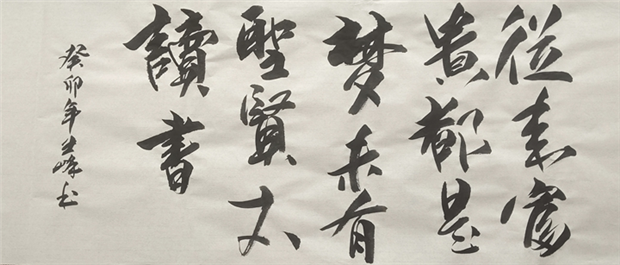 從來富
貴都是
梦未有
聖賢不
讀書
癸卯年峰书